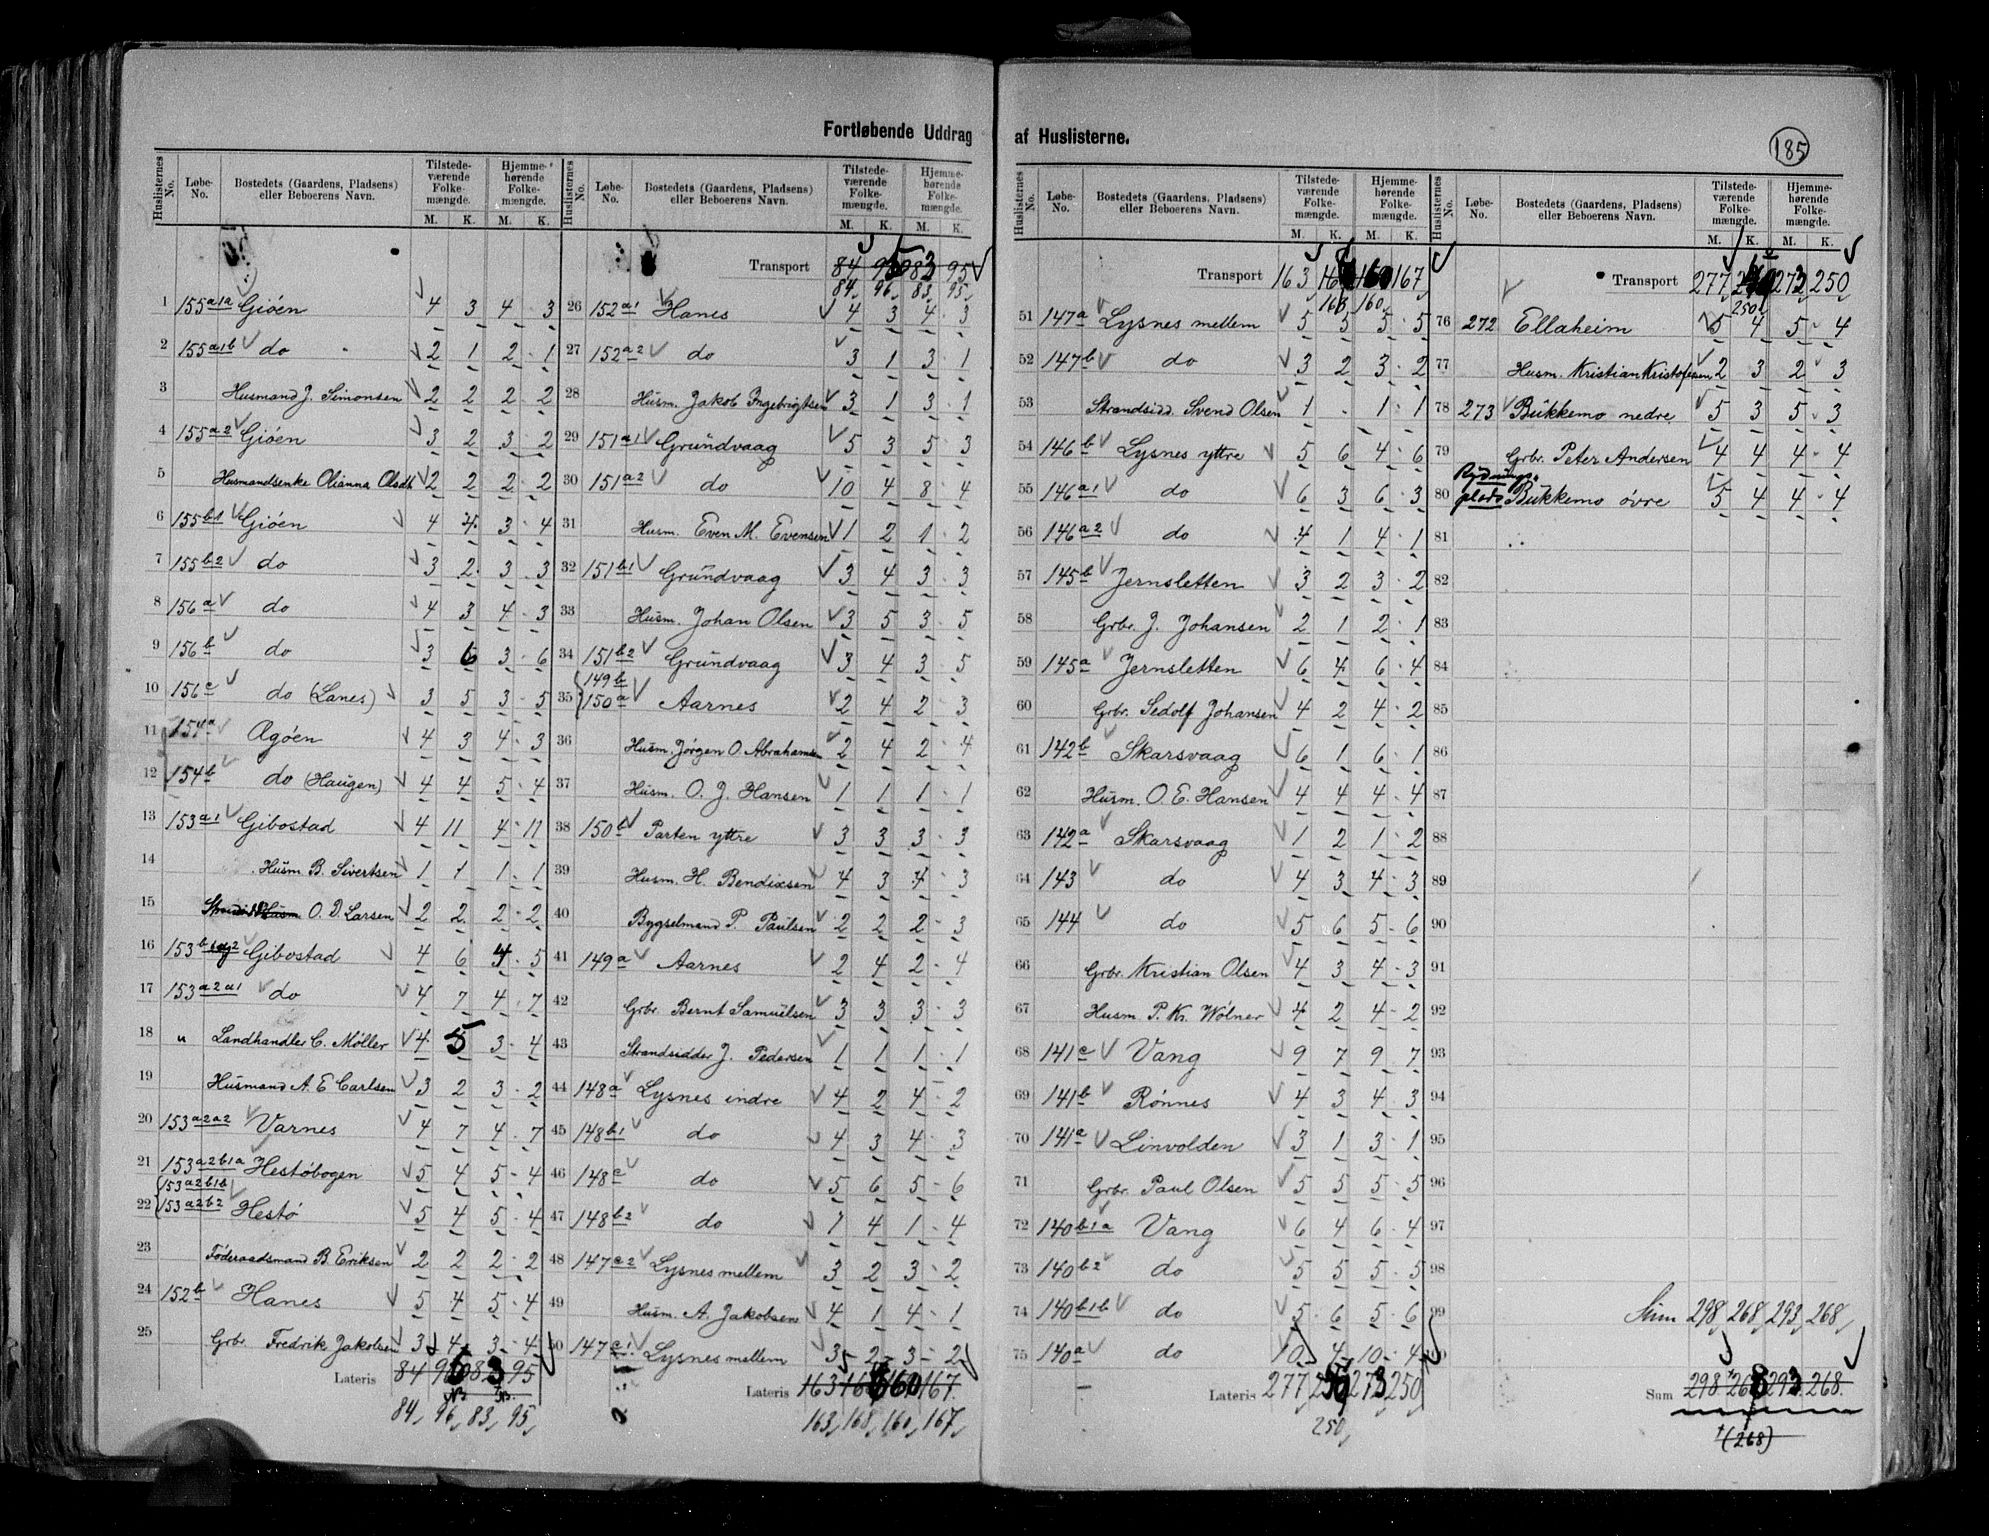 Fortløbende Uddrag af Huslisterne.
185
Huslisternes No. Løbe-No. Bostedets (Gaardens, Pladsens) eller Beboerens Navn. Tilstedeværende Folkemængde. M. K. Hjemmehørende Folkemængde. M. K.
1 155a1a Gioen 4 3 4 3
2 155a1b do 2 1 2 1
3 Husmand J. Simonsen 2 2 2 2
4 155a2 Gioen 3 2 3 2
5 Husmandsenke Olianna Olsdt 2 2 2 2
6 155b1 Gioen 4 4 3 4
7 155b2 do 3 2 3 3
8 156a do 4 3 4 3
9 156b do 3 6 3 6
10 156c do (Lanes) 3 5 3 5
11 154a Ogöen 4 3 4 3
12 154b do (Haugen) 4 4 5 4
13 153a1 Gibostad 4 11 4 11
14 Husm B. Sivertsen 1 1 1 1
15 O. D. Larsen 2 2 2 2
16 153b1og2 Gibostad 4 6 4 5
17 153a2a1 do 4 7 4 7
18 " Landhandler C. Möller 4 5 3 4
19 Husmand A. E Carlsen 3 2 3 2
20 153a2a2 Varnes 4 7 4 7
21 153a2b1a Hestöbogen 5 4 5 4
153a2b1b
22 153a2b2 Hestö 5 4 5 4
23 Föderaadsmand B. Eriksen 2 2 2 2
24 152b Hanes 5 4 5 4
25 Grbr. Fredrik Jakobsen 3 4 3 4
Lateris 84 96 83 95
84 96 83 95
Huslisternes No. Løbe-No. Bostedets (Gaardens, Pladsens) eller Beboerens Navn. Tilstedeværende Folkemængde. M. K. Hjemmehørende Folkemængde. M. K.
Transport 84 96 83 95
84 96 83 95
26 152a1 Hanes 4 3 4 3
27 152a2 do 3 1 3 1
28 Husm. Jakob Ingebrigtsen 3 1 3 1
29 151a1 Grundvaag 5 3 5 3
30 151a2 do 10 4 8 4
31 Husm. Even M. Evensen 1 2 1 2
32 151b1 Grundvaag 3 4 3 3
33 Husm. Johan Olsen 3 5 3 5
34 151b2 Grundvaag 3 4 3 5
149b
35 150a Aarnes 2 4 2 3
36 Husm. Jörgen O. Abrahamsen 2 4 2 4
37 Husm. O. J. Hansen 1 1 1 1
38 150b Parten yttre 3 3 3 3
39 Husm. H. Bendixsen 4 3 4 3
40 Bygselmand P. Paulsen 2 2 2 3
41 149a Aarnes 2 4 2 4
42 Grbr. Bernt Samuelsen 3 3 3 3
43 Strandsidder J. Pedersen 1 1 1 1
44 148a Lysnes indre 4 2 4 2
45 148b1 do 4 3 4 3
46 148c do 5 6 5 6
47 148b2 do 1 4 1 4
48 147c2 Lysnes mellem 3 2 3 2
49 Husm. A. Jakobsen 4 1 4 1
50 147c1 Lysnes mellem 3 2 3 2
Lateris 163 168 160 167
163 168 160 167
Huslisternes No. Løbe-No. Bostedets (Gaardens, Pladsens) eller Beboerens Navn. Tilstedeværende Folkemængde. M. K. Hjemmehørende Folkemængde. M. K.
Transport 163 168 160 167
168 160
51 147a Lysnes mellem 5 5 5 5
52 147b do 3 2 3 2
53 Strandsidd. Svend Olsen 1 . 1 1
54 146b Lysnes yttre 5 6 4 6
55 146a1 do 6 3 6 3
56 146a2 do 4 1 4 1
57 145b Jernsletten 3 2 3 2
58 Grbr. J. Johansen 2 1 2 1
59 145a Jernsletten 6 4 6 4
60 Grbr. Sedolf Johansen 4 2 4 2
61 142b Skarsvaag 6 1 6 1
62 Husm. O. E. Hansen 4 4 4 4
63 142a Skarsvaag 1 2 1 2
64 143 do 4 3 4 3
65 144 do 5 6 5 6
66 Grbr. Kristian Olsen 4 3 4 3
67 Husm. P. Kr. Wolner 4 2 4 2
68 141c Vang 9 7 9 7
69 141b Rönnes 4 3 4 3
70 141a Linvolden 3 1 3 1
71 Grbr. Paul Olsen 5 5 5 5
72 140b1a Vang 6 4 6 4
73 140b2 do 5 5 5 5
74 140b1b do 5 6 5 6
75 140a do 10 4 10 4
Lateris 277 250 273 250
250
Huslisternes No. Løbe-No. Bostedets (Gaardens, Pladsens) eller Beboerens Navn. Tilstedeværende Folkemængde. M. K. Hjemmehørende Folkemængde. M. K.
Transport 277 250 273 250
250
76 272 Ellaheim 5 4 5 4
77 Husm. Kristian Kristofersen 2 3 2 3
78 273 Bukkemo nedre 5 3 5 3
79 Grbr. Peter Andersen 4 4 4 4
Rydnings-
80 plads Bukkemo övre 5 4 4 4
81
82
83
84
85
86
87
88
89
90
91
92
93
94
95
96
97
98
99
Sum 298 268 293 268
100
Sum 298 268 293 268
(268)